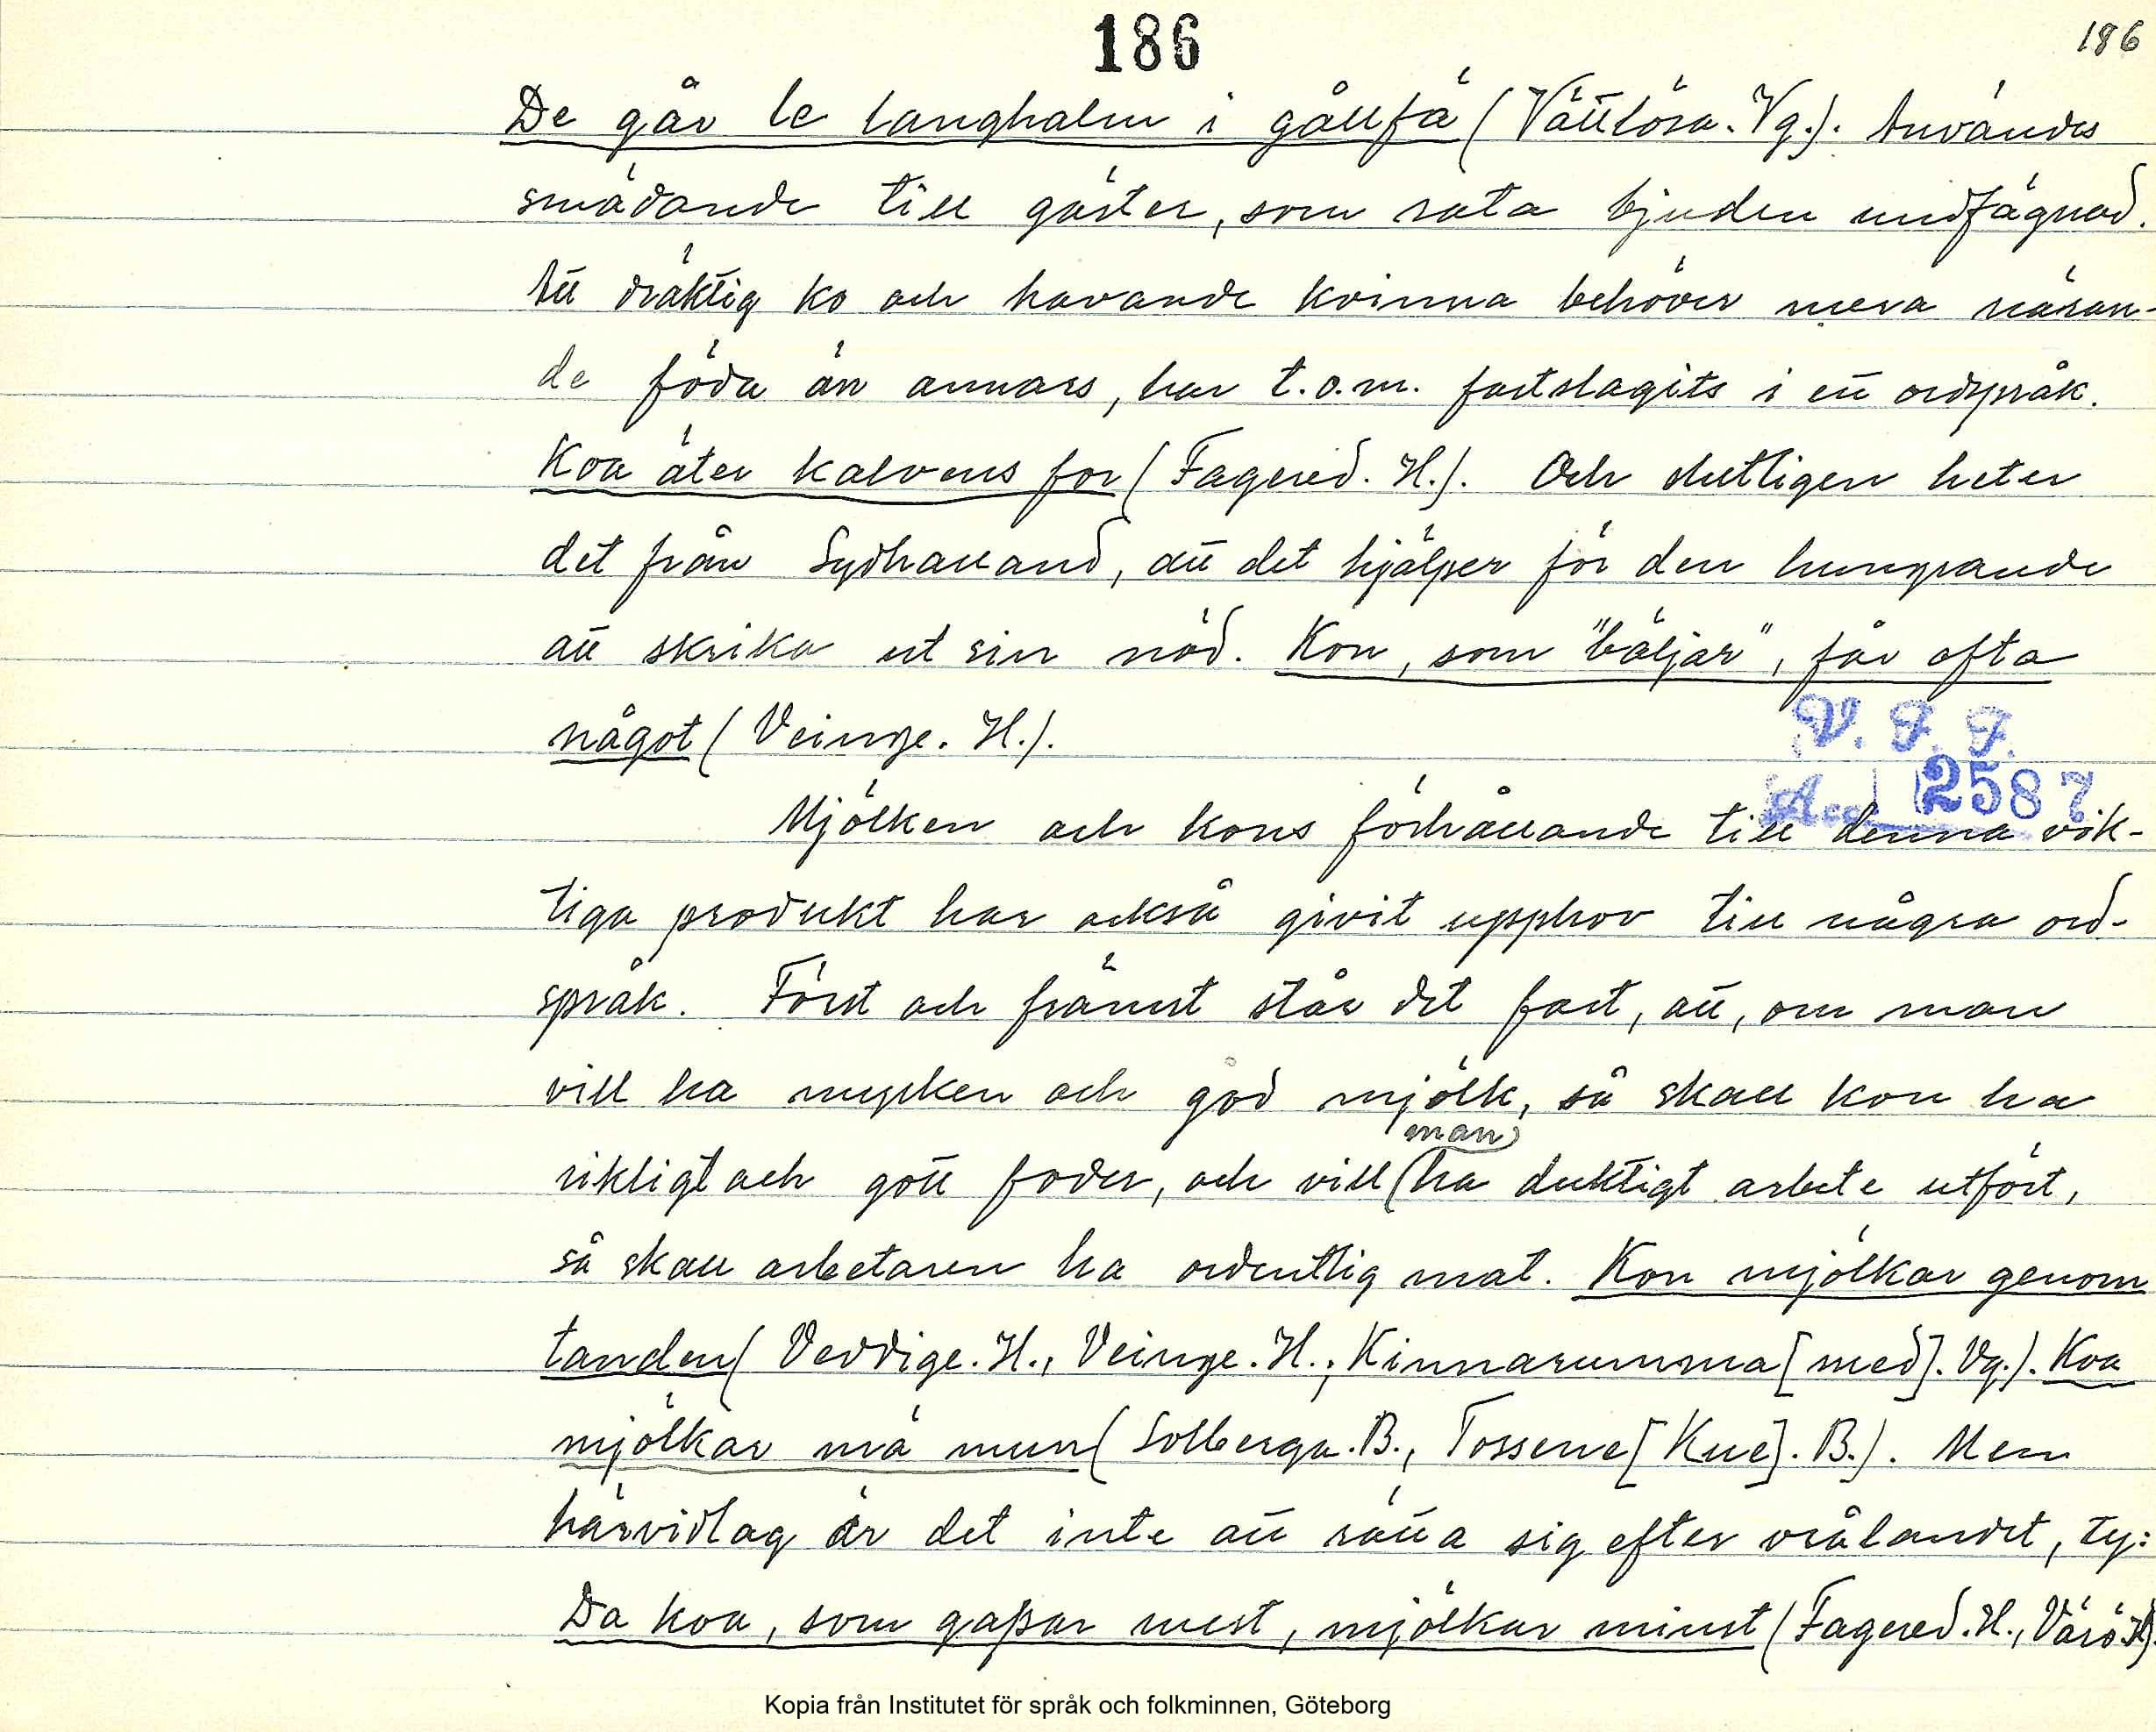 186
186
De går le langhalm i gållfä (Vättlösa. Vg.). Användes
smädande till gäster, som rata bjuden undfägnad.
Att dräktig ko och havande kvinna behöver mera näran-
de föda än annars, har t.o.m. fastslagits i ett ordspråk.
Koa äter kalvens for (Fagered. H.). Och slutligen heter
det från Sydhalland, att det hjälper för den hungrande
att skrika ut sin nöd. Kon, som "bäljar", får ofta
något (Veinge. H.).
V. F. F.
Acc 2587
Mjölken och kons förhållande till denna vik-
tiga produkt har också givit upphov till några ord-
språk. Först och främst står det fast, att, om man
vill ha mycken och god mjölk, så skall kon ha
rikligt och gott foder, och vill man ha duktigt arbete utfört,
så skall arbetaren ha ordentlig mat. Kon mjölkar genom
tanden (Veddige. H., Veinge. H., Kinnarumma [med]. Vg.). Koa
mjölkar mä mun (Solberga. B., Tossene [Kue]. B.). Men
härvidlag är det inte att rätta sig efter vrålandet, ty:
Da koa, som gapar mest, mjölkar minst (Fagered. H., Värö. H.).
Kopia från Institutet för språk och folkminnen, Göteborg